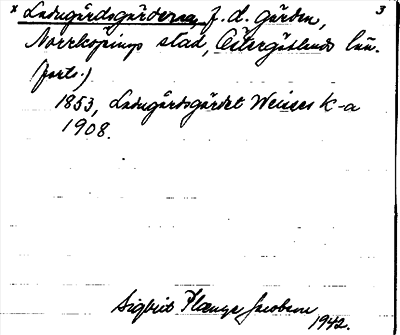 x Ladugårdsgärdena, f.d. gården, 3
Norrköpings stad, Östergötlands län.
(forts.)
1853, Ladugårdsgärdet Weisers K-a
1908.
Sigurd Jacobson
1942.